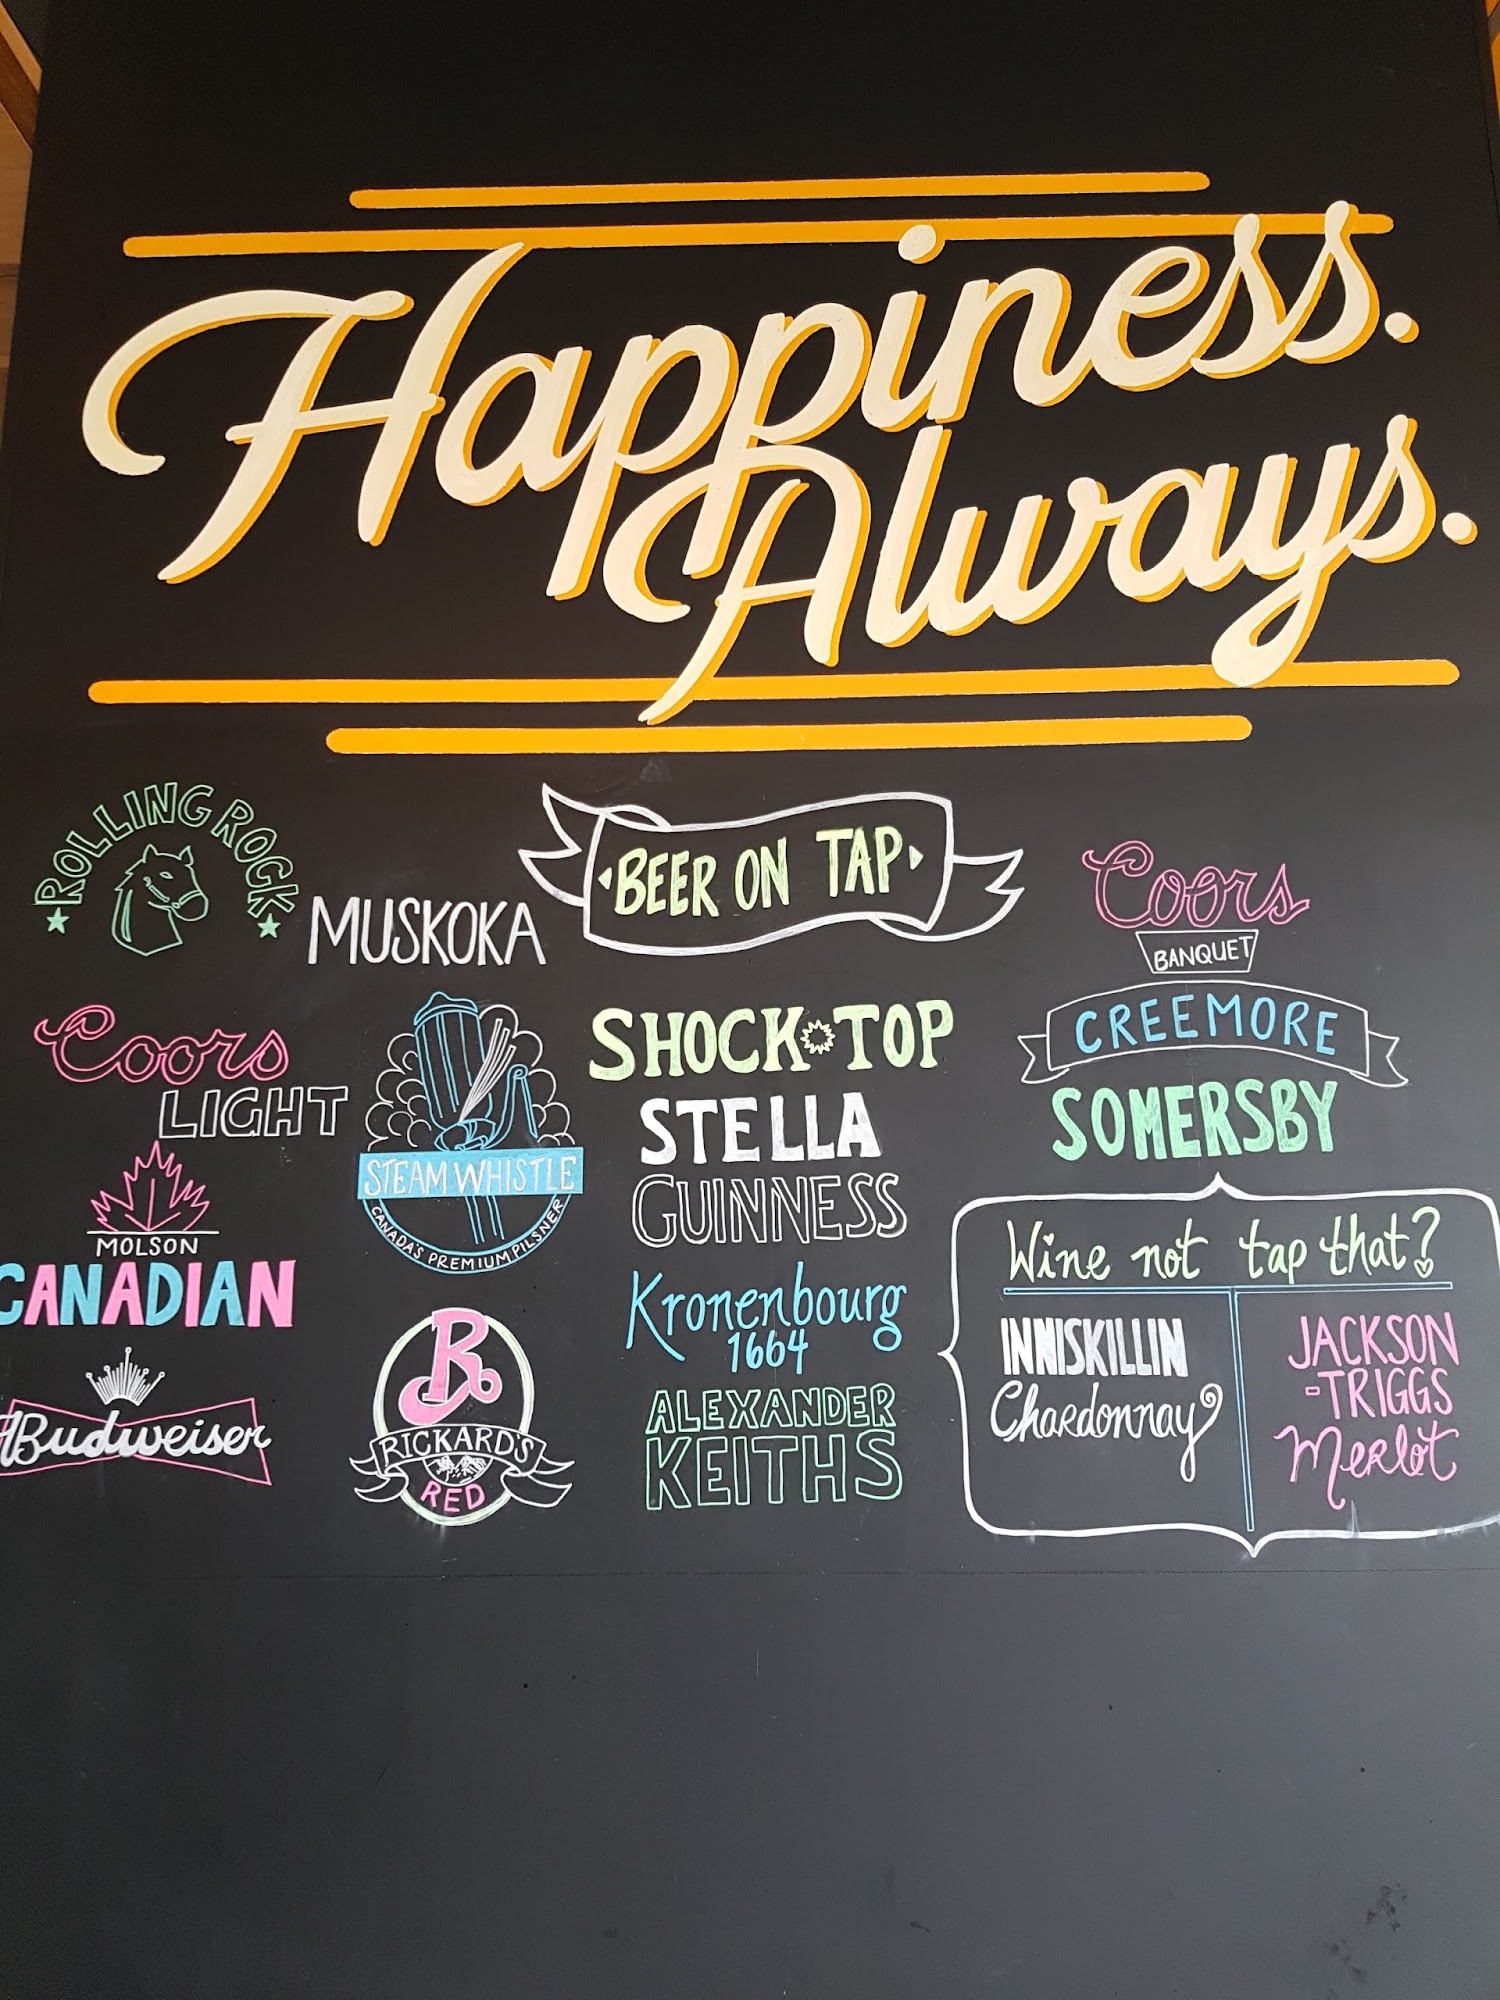 Happiness.
Always.
BEER ON TAP
ROLLING ROCK
MUSKOKA
Coors
LIGHT
MOLSON
CANADIAN
Budweiser
STEAM WHISTLE
CANADA'S PREMIUM PILSNER
R
RICKARD'S
RED
SHOCK TOP
STELLA
GUINNESS
Kronenbourg
1664
ALEXANDER
KEITHS
Coors
BANQUET
CREEMORE
SOMERSBY
Wine not tap that?
INNISKILLIN
Chardonnay
JACKSON
-TRIGGS
Merlot